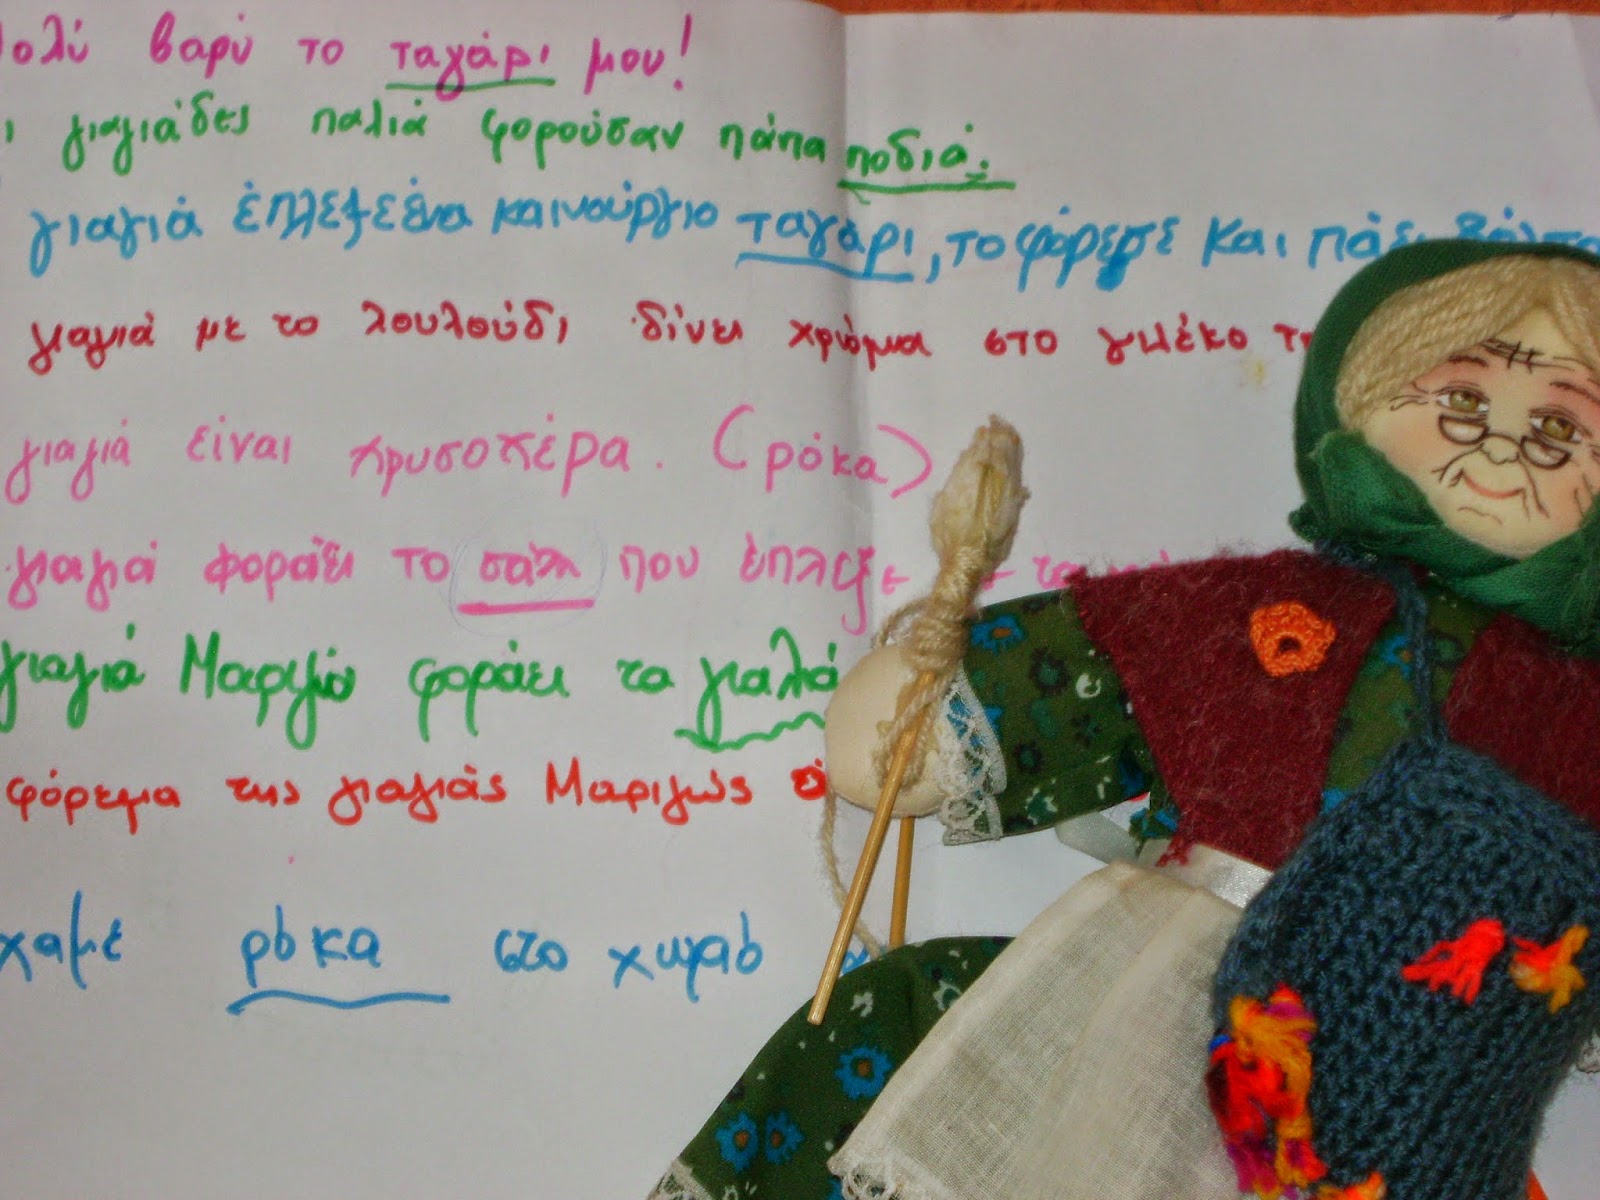 Πολύ βαρύ το ταγάρι μου!
ι γιαγιάδες παλιά φορούσαν πάπα ποδιά.
γιαγιά έπλεξε ένα καινούργιο ταγάρι, το φόρεσε και πάει βόλτα
γιαγιά με το λουλούδι δίνει χρώμα στο γιλέκο τη
γιαγιά είναι χρυσοχέρα. (ρόκα)
γιαγιά φοράει το σάλι που έπλεξε
γιαγιά Μαριγώ φοράει τα γιαλά
φόρεμα της γιαγιάς Μαριγώς
χαμε ρόκα στο χωριό